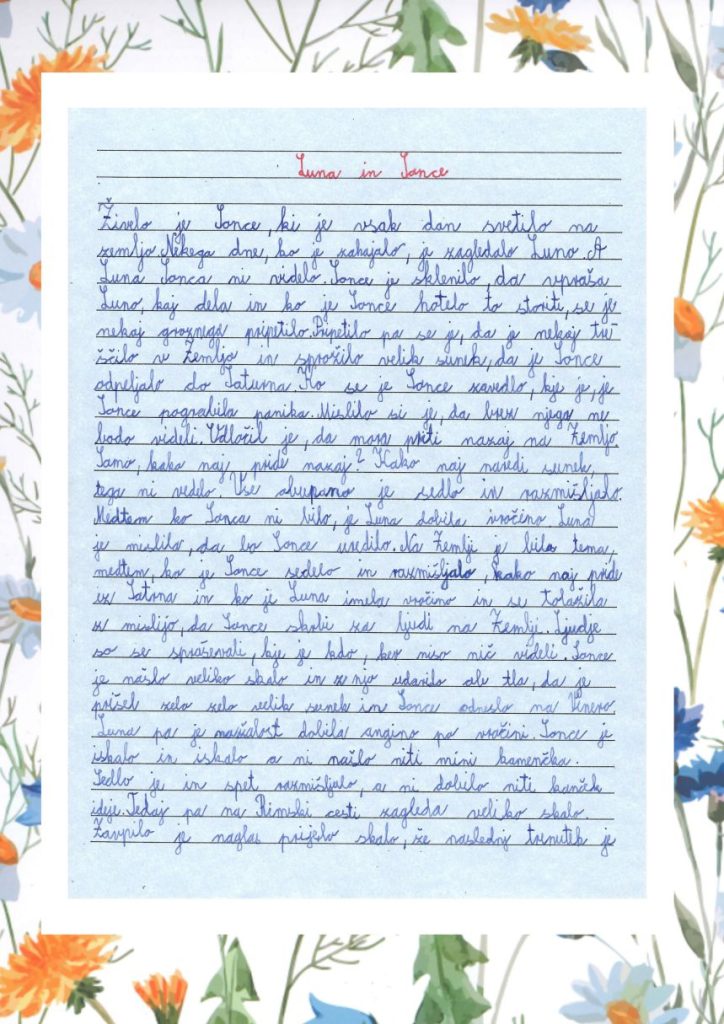 Luna in Sonce
Živelo je Sonce, ki je vsak dan svetilo na
zemljo. Nekega dne, ko je zahajalo, je zagledalo Luno. A
Luna Sonca ni videlo. Sonce je sklenilo, da vpraša
Luno, kaj dela in ko je Sonce hotelo to storiti, se je
nekaj groznega pripetilo. Pripetilo pa se je, da je nekaj tre-
ščilo v Zemljo in sprožilo velik sunek, da je Sonce
odpeljalo do Saturna. Ko se je Sonce zavedlo, kje je, je
Sonce pograbila panika. Mislilo si je, da brez njega ne
bodo videli. Odločil je, da mora priti nazaj na Zemljo.
Samo, kako naj pride nazaj? Kako naj naredi sunek,
tega ni vedelo. Vse obupano je sedlo in razmišljalo.
Medtem ko Sonca ni bilo, je Luna dobila vročino Luna
je mislila, da bo Sonce uredilo. Na Zemlji je bila tema,
medtem, ko je Sonce sedelo in razmišljalo, kako naj pride
iz Satrna in ko je Luna imela vročino in se tolažila
z mislijo, da Sonce skrbi za ljudi na Zemlji. Ljudje
so se spraševali, kje je kdo, ker niso nič videli. Sonce
je našlo veliko skalo in z njo udarilo ob tla, da je
prišel zelo zelo velik sunek in Sonce odneslo na Venero
Luna pa je mažalost dobila angino po vročini. Sonce je
iskalo in iskalo a ni našlo niti mini kamenčka.
Sedlo je in spet razmišljalo, a ni dobilo niti kanček
ideje. Tedaj pa na Rimski cesti zagleda veliko skalo.
Zavpilo je naglas prijelo skalo, že naslednj trenutek je